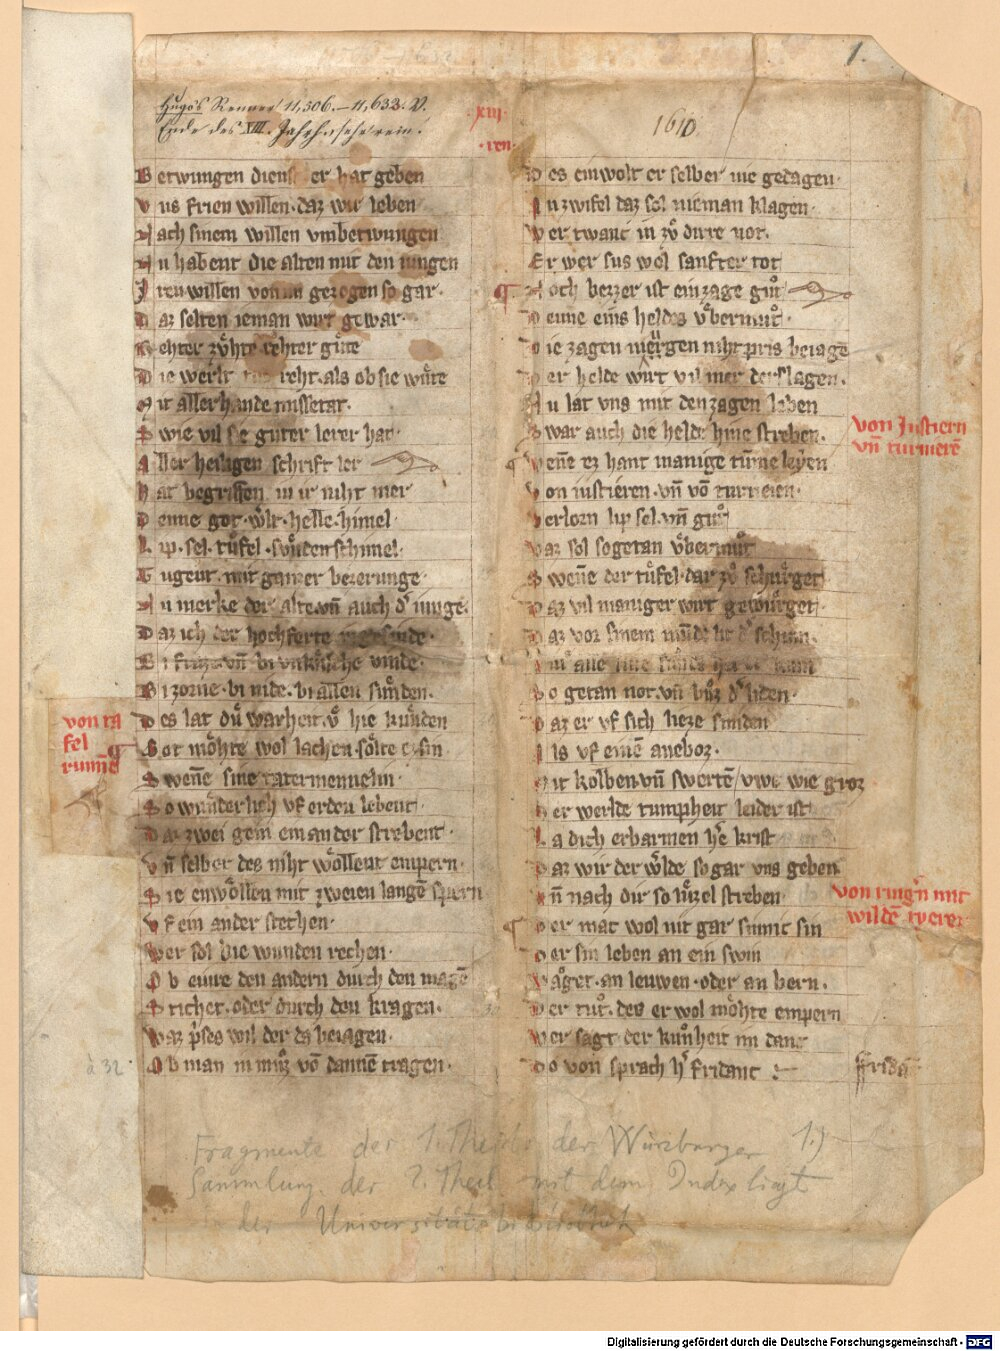 1.
Hugo's Renner 11,506.–11,633. V.
Ende des XIII. Jahrh.
xiii
ren
1610
Betwungen dienst er hat geben
Vns frien willen. daz wir leben
Nach sinem willen vmbetwungen
Nu habent die alten mit den iungen
Iren willen von im gezogen so gar.
Daz selten ieman wirt gewar.
Rehter zvͦhte rehter guͤte
Die werlt reht. als ob sie wuͤte
Mit aller hande missetat.
Swie vil sie guter lerer hat.
Aller heiligen schrift ler
Hat begriffen in ir niht mer
Denne got. werlt. helle. himel.
Lip. sel. tuͤfel. suͤnden schimel.
Tugent. mit ganzer bezerunge
Nu merke der alte. vn̄ auch d' iunge
Daz ich der hochferte
Bi vn̄ bi vnkuͤsche vinde.
Bi zorne. bi nide. bi allen suͤnden.
Des lat duͤ warheit. hie kuͤnden
Got moͤhte wol lachen. soͤlte ez sin
Swen̄e sine tatermennelin.
So wunderlich vf erden lebent.
Daz zwei gein einander strebent.
Vn̄ selber des niht woͤllent enpern.
Sie enwoͤllen mit zweien langē spern
Vf ein ander stechen.
Wer sol die wunden rechen.
Ob eine den andern durch den magē
Stichet. oder durch den kragen.
Waz p'ses wil der da beiagen.
Ob man in muͦz vō dannē tragen.
von ta
fel
runnē
à 32
Des einwolt er selber nie gedagen.
An zwifel daz sol nieman klagen.
Wer twanc in zvͦ dirre not.
Er wer sus wol sanfter tot
Noch bezzer ist ein zage guͦt
Denne eins heldes vͤbermuͦt.
Die zagen muͤgen niht pris beiagē
Der helde wirt vil mer derslagen.
Nu lat vns mit den zagen leben
Swar auch die helde hine streben.
Wen̄e ez hant manige turneieyen
Von iustieren. vn̄ vō turneien.
Verlorn lip sel. vn̄ guͦt
Waz sol sogetan vͤbermuͦt
Swen̄e der tuͤfel dar zvͦ schuͤrget
Daz vil maniger wirt gewuͤrget.
Daz vor sinem munde lit d' schum.
So getan not. vn̄ buͦz d' liden.
Daz er vf sich lieze smiden
Als vf einē aneboz.
Mit kolben. vn̄ swertē / uwe wie groz
Der werlde tumpheit leider ist
La dich erbarmen h're krist
Daz wir der werlde so gar vns geben
Vn̄ nach dir so luͤtzel streben.
Der mac wol nit gar sinnic sin
Der sin leben an ein swin
Waget. an leuwen. oder an bern.
Der tuͦt. des er wol moͤhte enpern
Wer sagt der kuͤnheit im danc
Do von sprach h' Fridanc
von Iustiern
vn̄ turnierē
von ringn mit
wilde tyeren
ffridā
Fragmente des 1. Theils der Würzburger 1.)
Sammlung. der 2. Theil mit dem Index liegt
in der Universitätsbibliothek
Digitalisierung gefördert durch die Deutsche Forschungsgemeinschaft - DFG